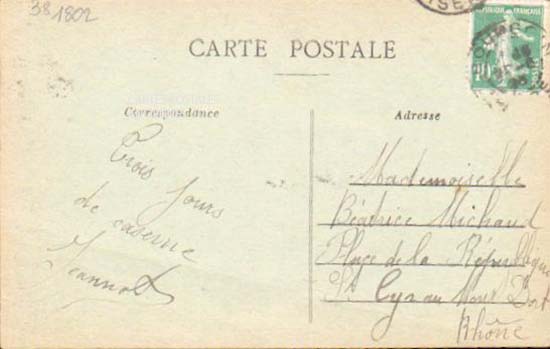 38 1802
RÉPUBLIQUE FRANÇAISE
10
CARTE POSTALE
Correspondance
Adresse
Trois Jours
de caserne
Jeannot
Mademoiselle
Béatrice Michaud
Place de la République
St Cyr au Mont D'or
Rhône